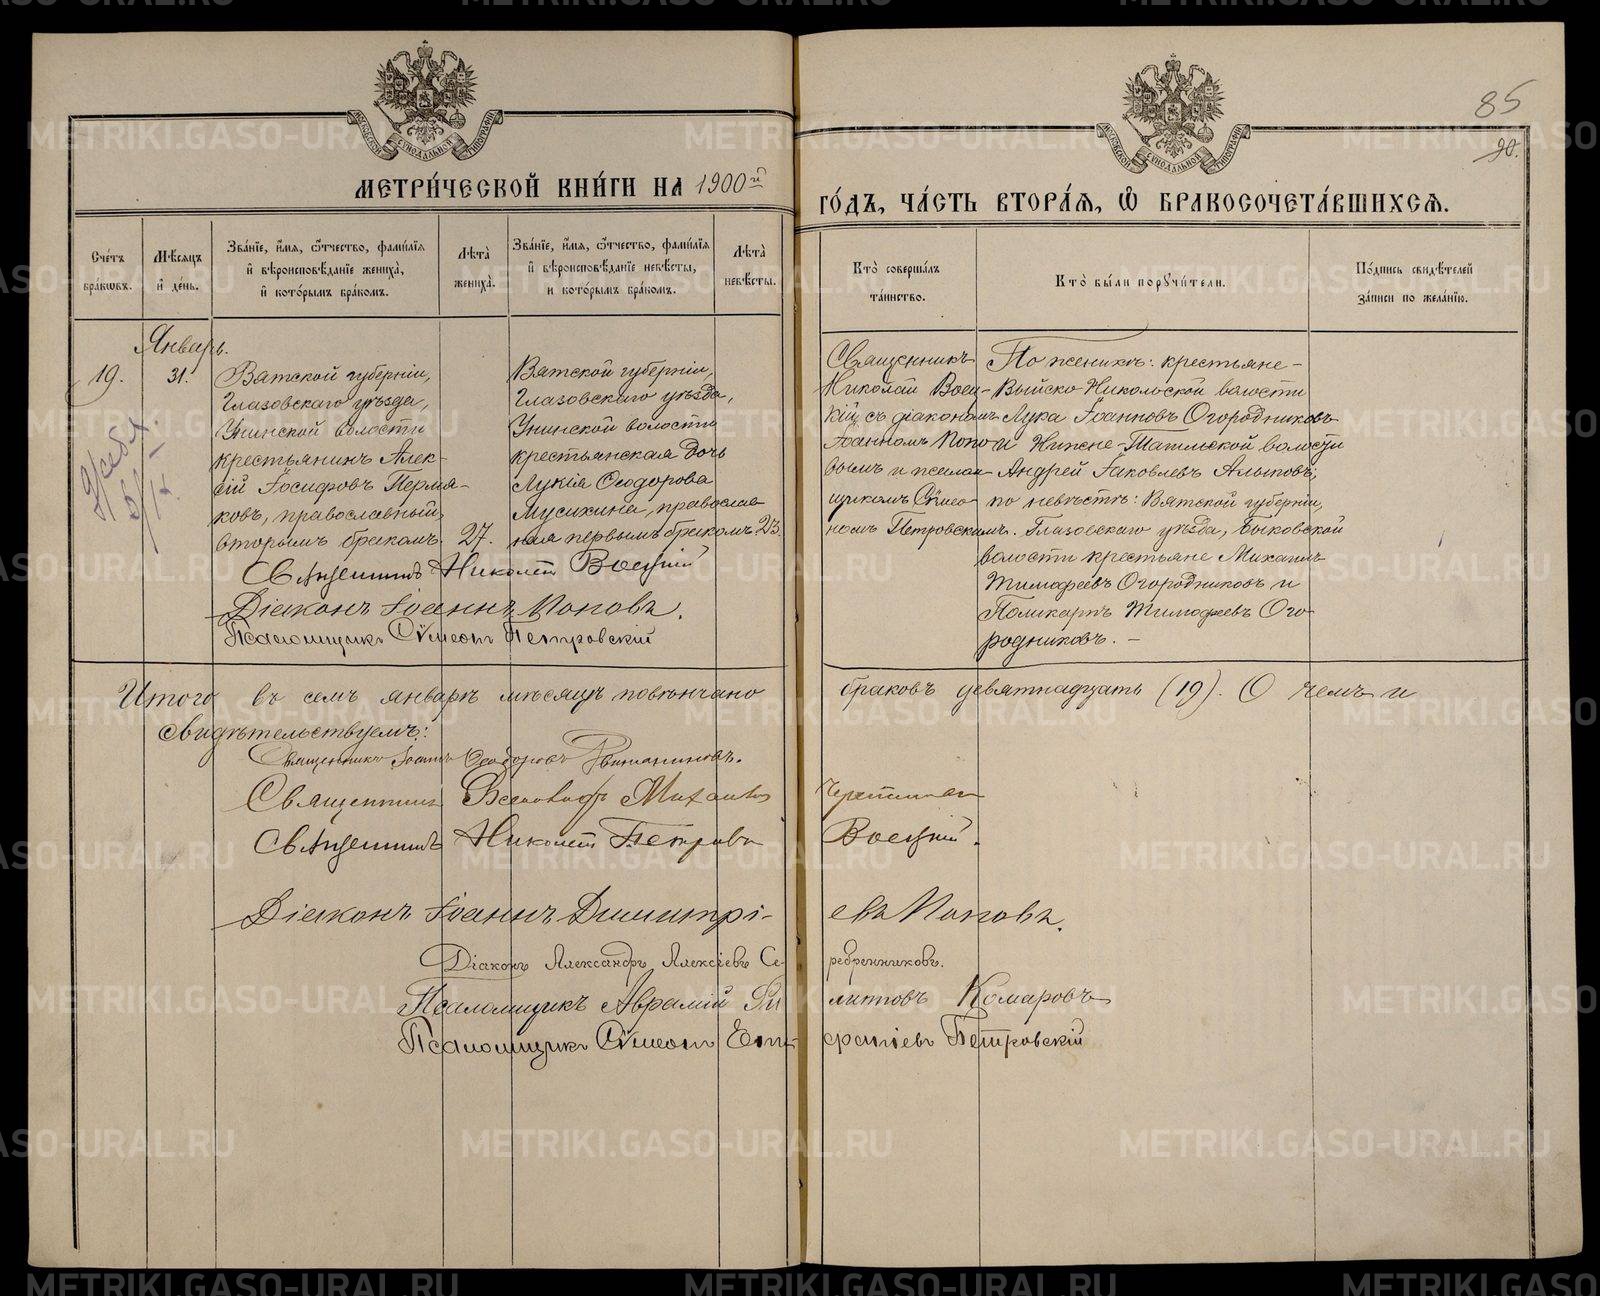 85
20.
МЕТРИЧЕСКОЙ КНИГИ НА 1900й
ГОДЪ, ЧАСТЬ ВТОРАЯ, Ѿ БРАКОСОЧЕТАВШИХСЯ.
Счетъ браковъ.
Мѣсяцъ и день.
Званіе, имя, отчество, фамилія и вѣроисповѣданіе жениха, и которымъ бракомъ.
Лѣта жениха.
Званіе, имя, отчество, фамилія и вѣроисповѣданіе невѣсты, и которымъ бракомъ.
Лѣта невѣсты.
Кто совершалъ таинство.
Кто были поручители.
Подпись свидѣтелей записи по желанію.
Январь.
19.
31.
Вятской губерніи,
Глазовскаго уѣзда,
Унинской волости
крестьянинъ Алек-
сій Іосифовъ Перма-
ковъ, православный,
вторымъ бракомъ.
27.
Вятской губерніи,
Глазовскаго уѣзда,
Унинской волости
крестьянская дочь
Лукія Ѳеодорова
Мусихина, православ
ная первымъ бракомъ.
23.
Священникъ
Николай Воец-
кій съ діакономъ
Іоанномъ Попо
вымъ и псалом
щикомъ Сѵмео
номъ Петровскимъ.
По женихѣ: крестьяне-
Выйско-Никольской волости
Лука Іоанновъ Огородниковъ
и Нижне-Тагильской волости
Андрей Іаковлевъ Алыповъ;
по невѣстѣ: Вятской губерніи,
Глазовскаго уѣзда, Быковской
волости крестьяне Михаилъ
Тимофеевъ Огородниковъ и
Поликарпъ Тимофеевъ Ого-
родниковъ. –
Священникъ Николай Воецкій
Діаконъ Іоаннъ Поповъ.
Псаломщикъ Сѵмеонъ Петровскій
Итого въ семъ январѣ мѣсяцѣ повѣнчано браковъ девятнадцать (19). О чемъ и
свидѣтельствуемъ:
Священникъ Іоаннъ Ѳеодоровъ
Священникъ Михаиловъ
Священникъ Николай Петровъ Воецкій.
Діаконъ Іоаннъ Димитрі- евъ Поповъ.
Діаконъ Александръ Алексіевъ Се- ребренниковъ.
Псаломщикъ Аврамій Фи липповъ Комаровъ
Псаломщикъ Сѵмеонъ Епи- фаніевъ Петровскій
METRIKI.GASO-URAL.RU